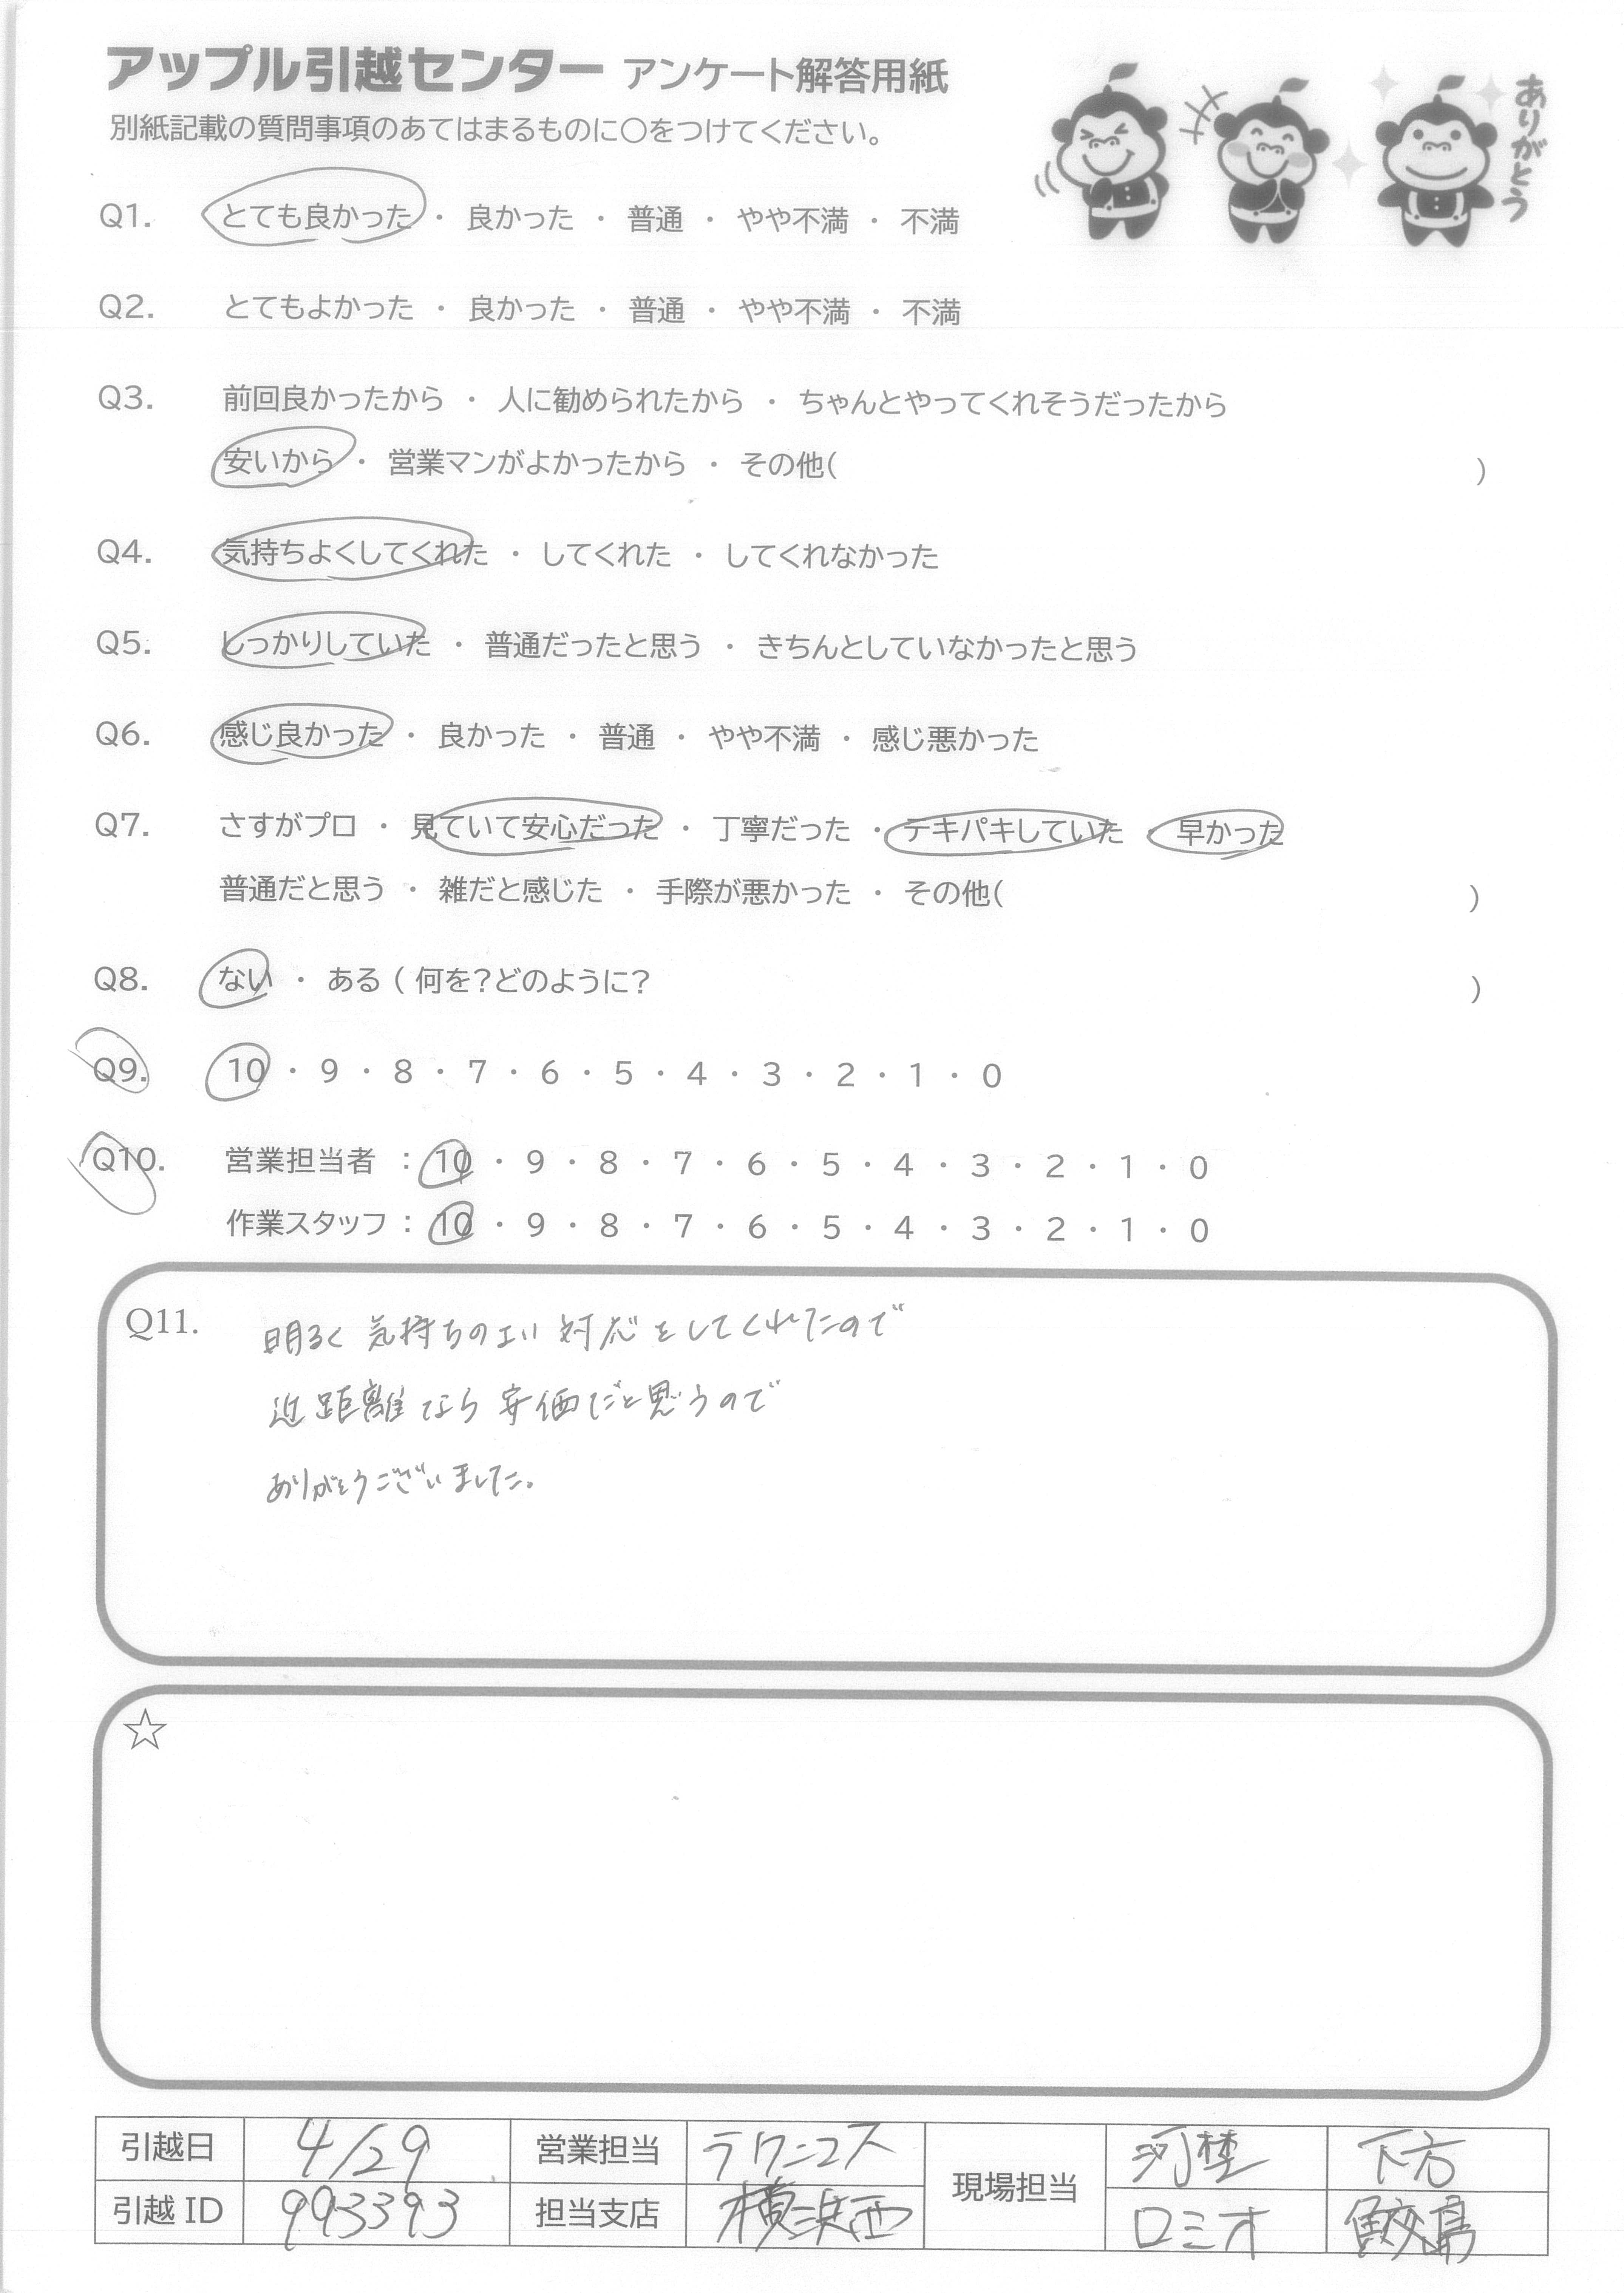 アップル引越センター アンケート解答用紙
別紙記載の質問事項のあてはまるものに〇をつけてください。
ありがとう
Q1. とても良かった ・ 良かった ・ 普通 ・ やや不満 ・ 不満
Q2. とてもよかった ・ 良かった ・ 普通 ・ やや不満 ・ 不満
Q3. 前回良かったから ・ 人に勧められたから ・ ちゃんとやってくれそうだったから
安いから ・ 営業マンがよかったから ・ その他( )
Q4. 気持ちよくしてくれた ・ してくれた ・ してくれなかった
Q5. しっかりしていた ・ 普通だったと思う ・ きちんとしていなかったと思う
Q6. 感じ良かった ・ 良かった ・ 普通 ・ やや不満 ・ 感じ悪かった
Q7. さすがプロ ・ 見ていて安心だった ・ 丁寧だった ・ テキパキしていた ・ 早かった
普通だと思う ・ 雑だと感じた ・ 手際が悪かった ・ その他( )
Q8. ない ・ ある ( 何を?どのように? )
Q9. 10 ・ 9 ・ 8 ・ 7 ・ 6 ・ 5 ・ 4 ・ 3 ・ 2 ・ 1 ・ 0
Q10. 営業担当者 : 10 ・ 9 ・ 8 ・ 7 ・ 6 ・ 5 ・ 4 ・ 3 ・ 2 ・ 1 ・ 0
作業スタッフ : 10 ・ 9 ・ 8 ・ 7 ・ 6 ・ 5 ・ 4 ・ 3 ・ 2 ・ 1 ・ 0
Q11. 明るく 気持ちのよい 対応 をしてくれたので
近距離なら 安価だと思うので
ありがとうございました。
☆
引越日 4/29 営業担当 現場担当 下方
引越 ID 993393 担当支店 横浜西 ロミオ 鮫島